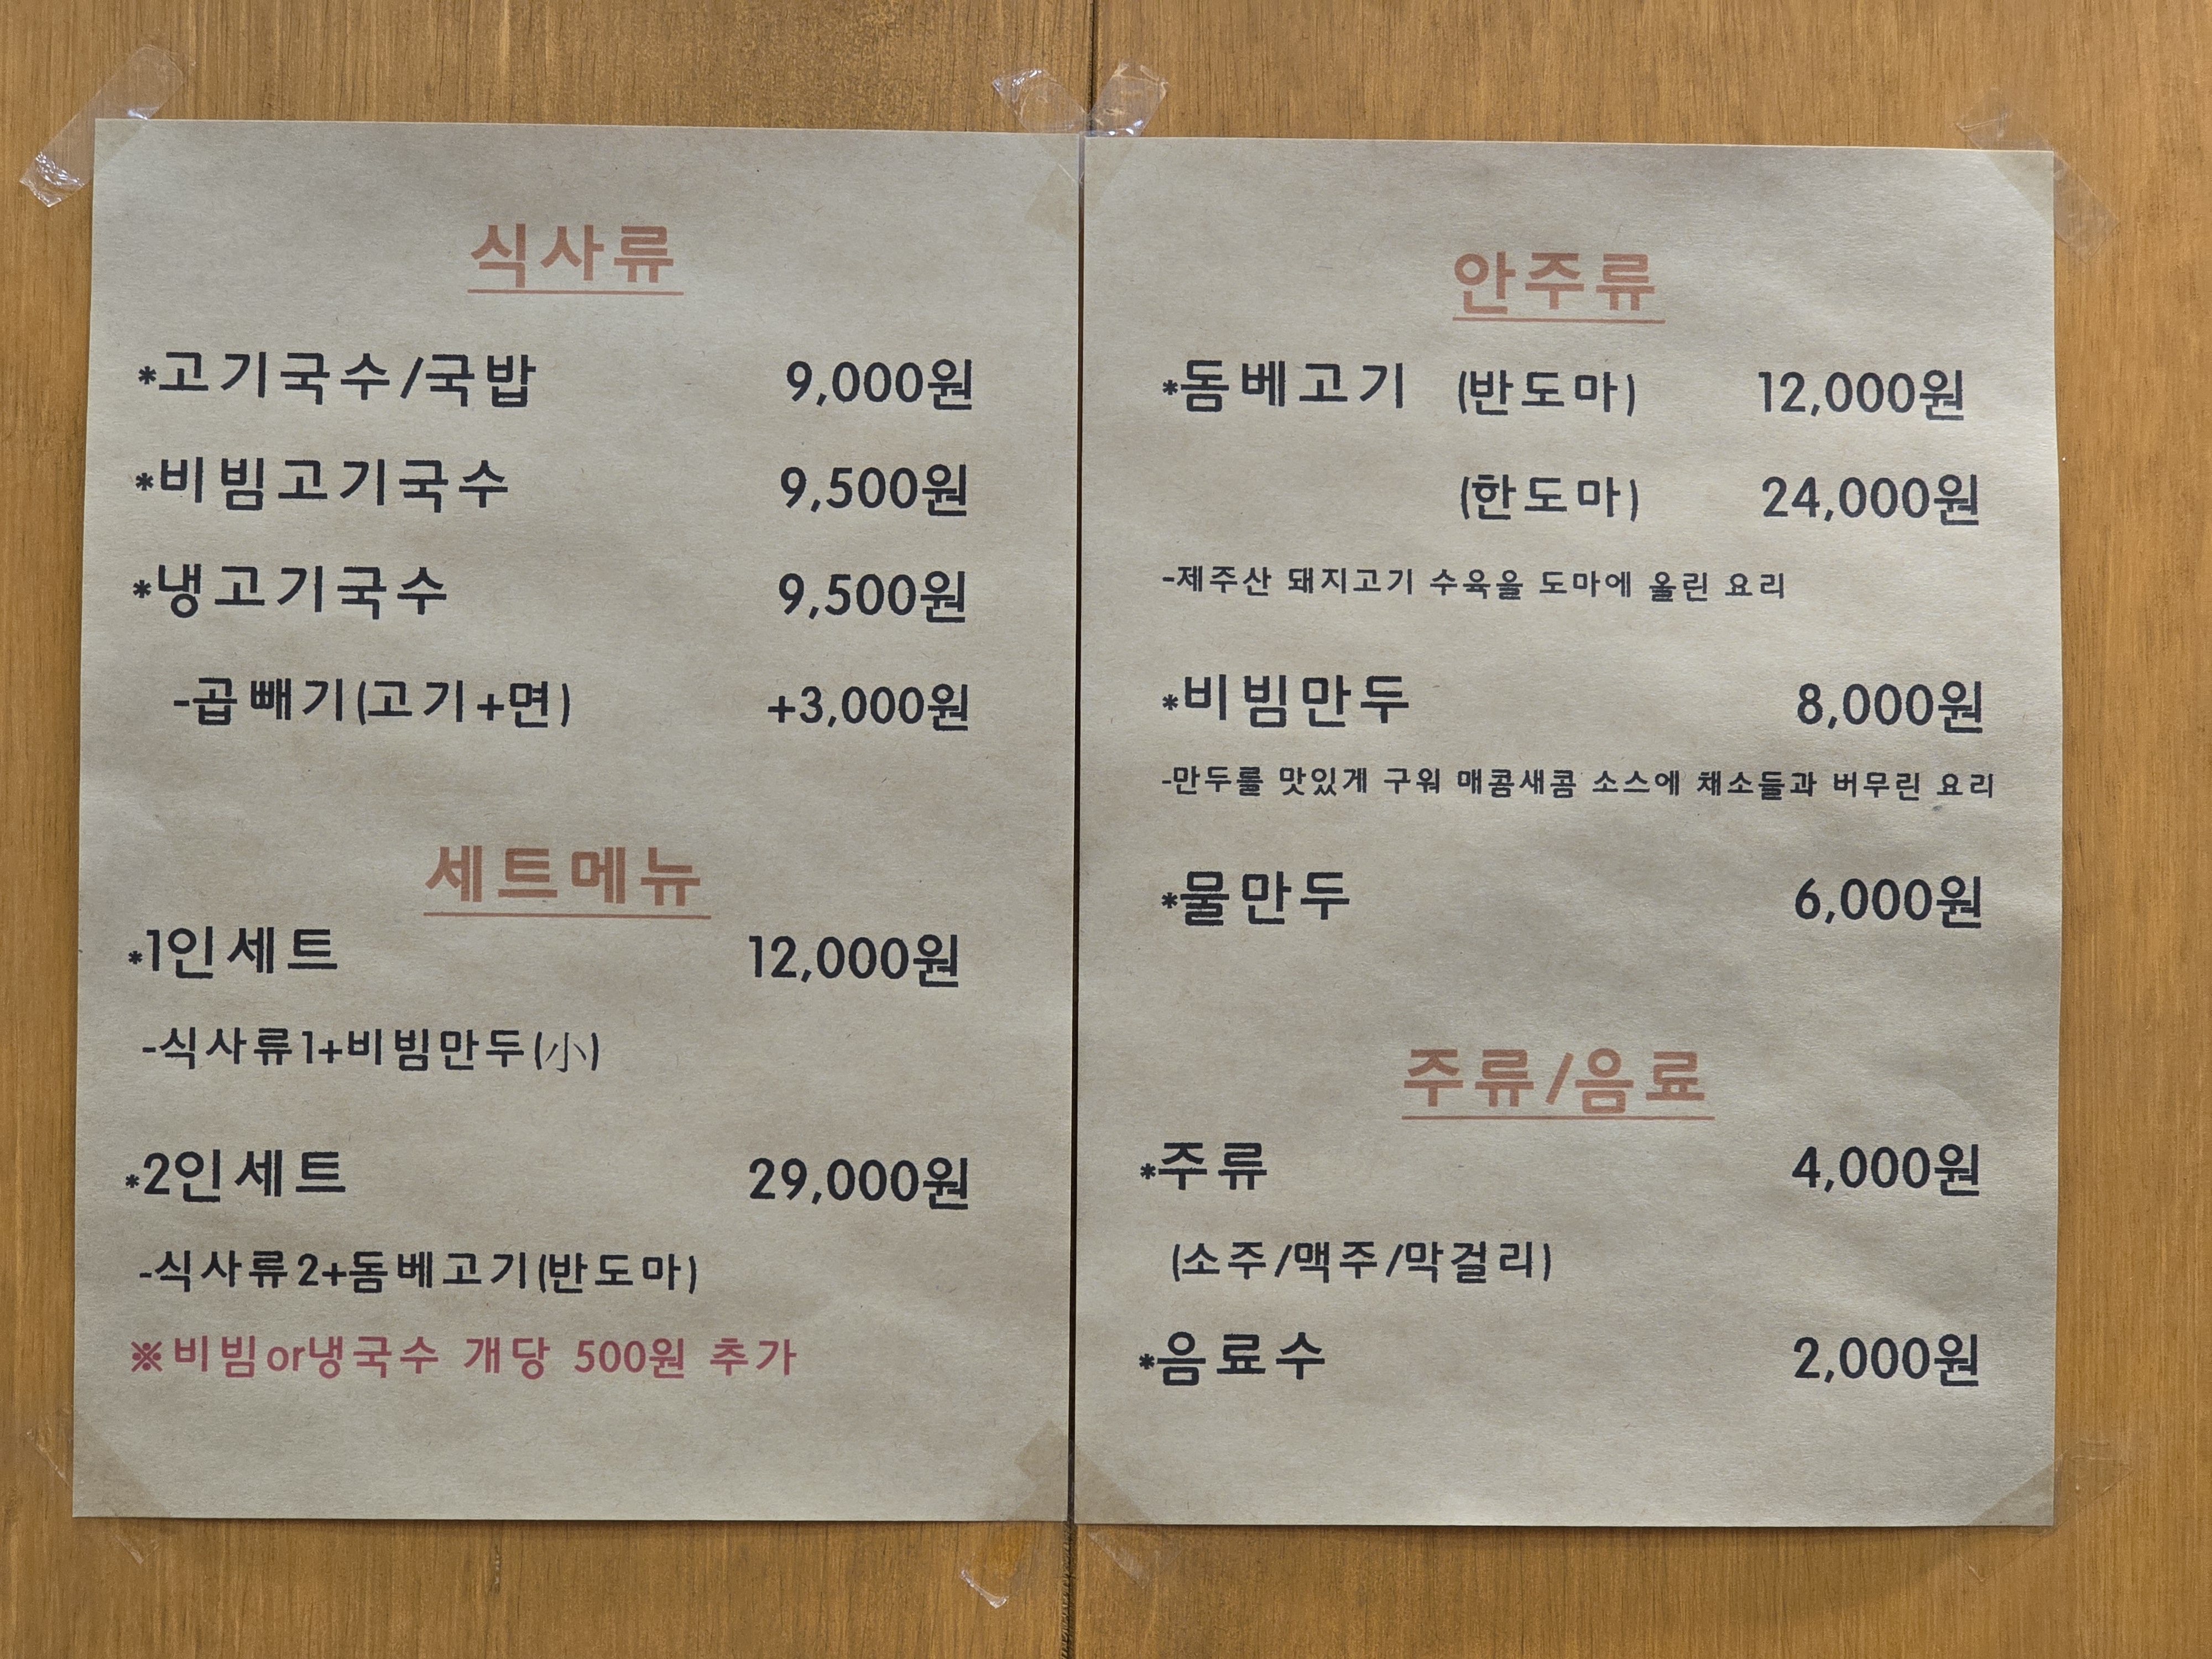 식사류
*고기국수/국밥 9,000원
*비빔고기국수 9,500원
*냉고기국수 9,500원
-곱빼기(고기+면) +3,000원
세트메뉴
*1인세트 12,000원
-식사류1+비빔만두(小)
*2인세트 29,000원
-식사류2+돔베고기(반도마)
※비빔or냉국수 개당 500원 추가
안주류
*돔베고기 (반도마) 12,000원
(한도마) 24,000원
-제주산 돼지고기 수육을 도마에 올린 요리
*비빔만두 8,000원
-만두를 맛있게 구워 매콤새콤 소스에 채소들과 버무린 요리
*물만두 6,000원
주류/음료
*주류 4,000원
(소주/맥주/막걸리)
*음료수 2,000원